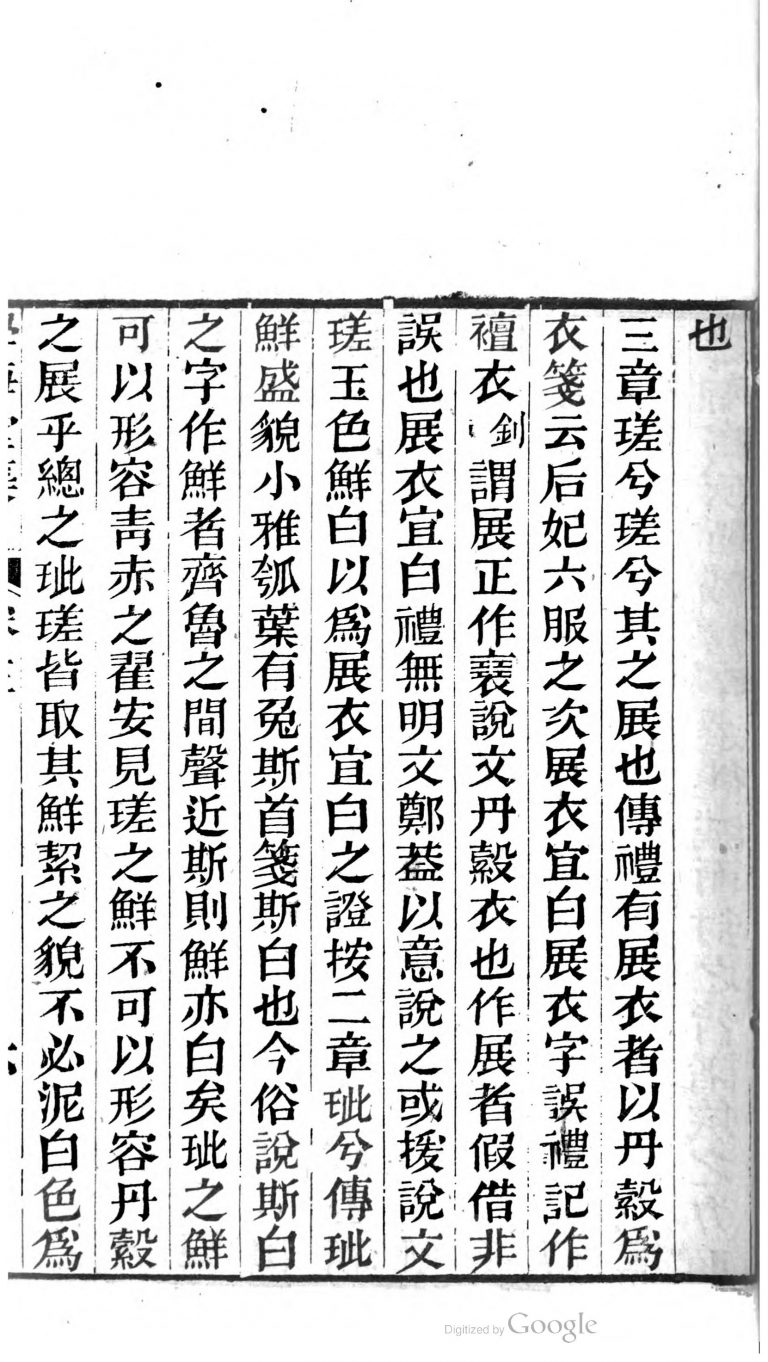 也
三章瑳兮瑳兮其之展也傳禮有展衣者以丹縠爲
衣箋云后妃六服之次展衣宜白展衣字誤禮記作
襢衣釗謂展正作襄說文丹縠衣也作展者假借非
誤也展衣宜白禮無明文鄭葢以意說之或援說文
瑳玉色鮮白以爲展衣宜白之證按二章玼兮傳玼
鮮盛貌小雅瓠葉有兔斯首箋斯白也今俗說斯白
之字作鮮者齊魯之間聲近斯則鮮亦白矣玼之鮮
可以形容靑赤之翟安見瑳之鮮不可以形容丹縠
之展乎總之玼瑳皆取其鮮絜之貌不必泥白色爲
Digitized by Google